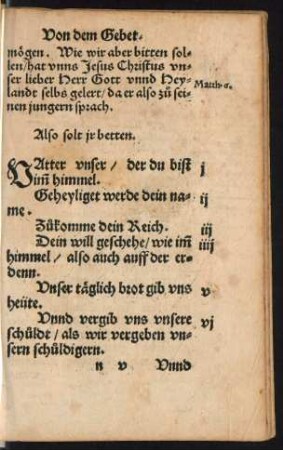 Von dem Gebet.
mögen. Wie wir aber bitten sol-
len/ hat vnns Jesus Christus vn-
ser lieber Herr Gott vnnd Hey-
landt selbs gelert/ da er also zů sei-
nen jungern sprach.
Matth. 6.
Also solt jr betten.
VAtter vnser/ der du bist j
inn himmel.
Geheyliget werde dein na- ij
me.
Zůkomme dein Reich. iij
Dein will geschehe/ wie im̃ iiij
himmel/ also auch auff der er-
denn.
Vnser täglich brot gib vns v
heüte.
Vnnd vergib vns vnsere vj
schůldt/ als wir vergeben vn-
sern schůldigern.
n v Vnnd